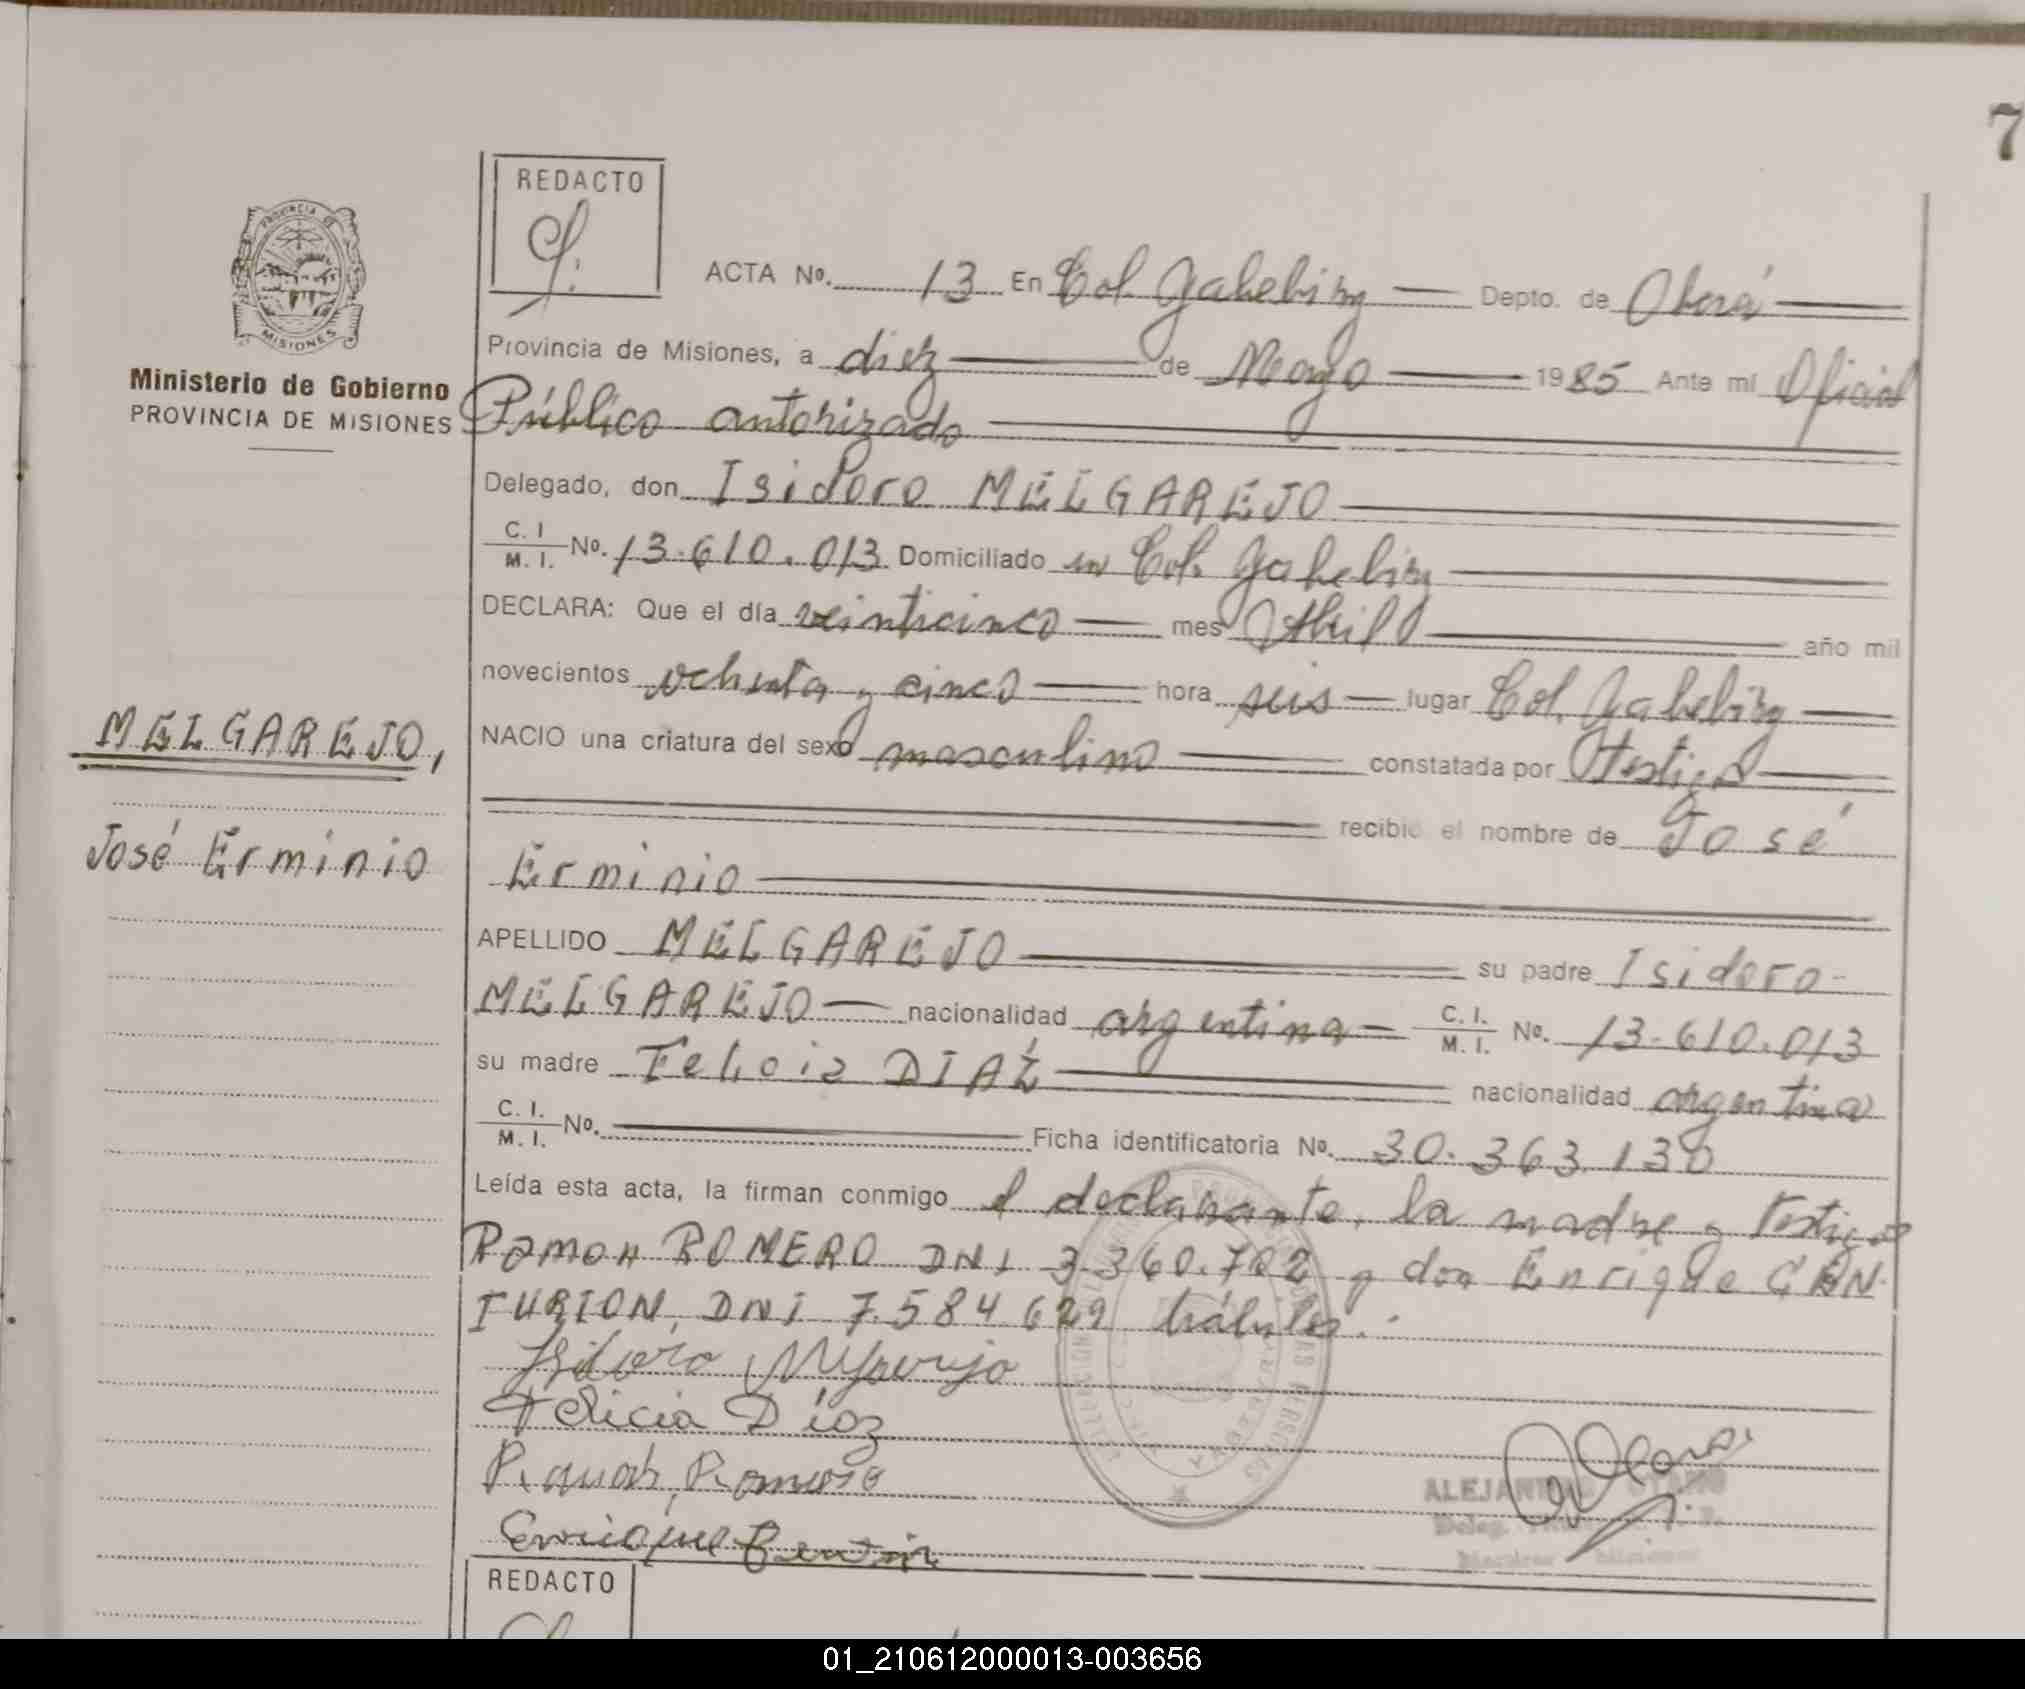 7
REDACTO
PROVINCIA DE
MISIONES
Ministerio de Gobierno
PROVINCIA DE MISIONES
ACTA Nº. 13 En Col. Yabebiry Depto. de Oberá
Provincia de Misiones, a diez de Mayo 1985 Ante mí Oficial
Público autorizado
Delegado, don Isidoro MELGAREJO
C. I. / M. I. Nº. 13.610.013 Domiciliado en Col. Yabebiry
DECLARA: Que el día veinticinco mes Abril año mil
novecientos ochenta y cinco hora seis lugar Col. Yabebiry
NACIO una criatura del sexo masculino constatada por Testigo
recibio el nombre de José
Erminio
APELLIDO MELGAREJO su padre Isidoro
MELGAREJO nacionalidad argentina C. I. / M. I. Nº. 13.610.013
su madre Felicia DIAZ nacionalidad argentina
C. I. / M. I. Nº. Ficha identificatoria Nº. 30.363.130
Leída esta acta, la firman conmigo el declarante, la madre y testigos
Ramon ROMERO DNI 3.360.702 y don Enrique CEN
TURION, DNI 7.584.629 hábiles.
Isidoro Melgarejo
Felicia Díaz
Ramon Romero
Enrique
MELGAREJO,
José Erminio
REDACTO
01_210612000013-003656